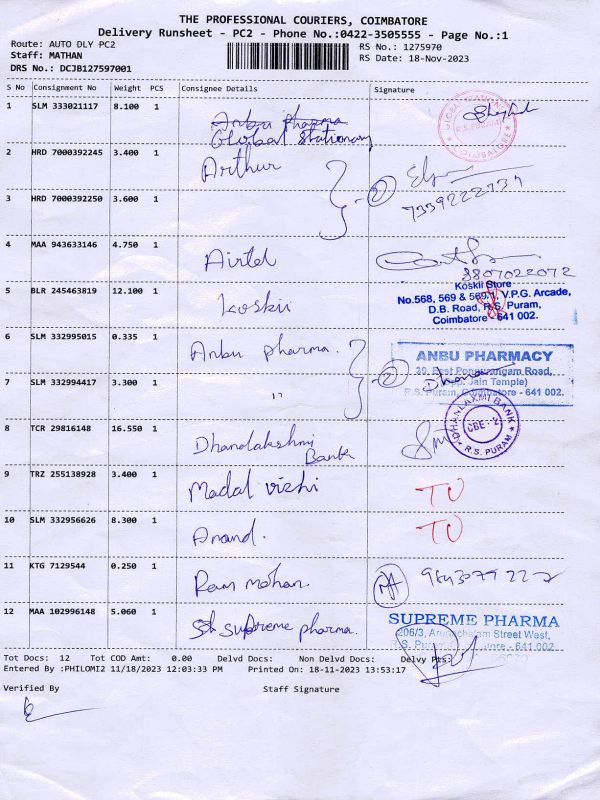 THE PROFESSIONAL COURIERS, COIMBATORE
Delivery Runsheet - PC2 - Phone No.:0422-3505555 - Page No.:1
Route: AUTO DLY PC2
Staff: MATHAN
DRS No.: DCJB127597001
RS No.: 1275970
RS Date: 18-Nov-2023
S No Consignment No Weight PCS Consignee Details Signature
1 SLM 333021117 8.100 1
Anbu pharma
Global Stationary
R.S. PURAM
COIMBATORE
2 HRD 7000392245 3.400 1 Arthur
2
7339222737
3 HRD 7000392250 3.600 1
4 MAA 943633146 4.750 1 Airtel
9807022072
5 BLR 245463819 12.100 1 Koskii
Koskii Store
No.568, 569 & 569/1, V.P.G. Arcade,
D.B. Road, R.S. Puram,
Coimbatore - 641 002.
6 SLM 332995015 0.335 1 Anbu pharma.
2
ANBU PHARMACY
39, East Ponnurangam Road,
(Opp. Jain Temple)
R.S. Puram, Coimbatore - 641 002.
7 SLM 332994417 3.300 1 "
8 TCR 29816148 16.550 1 Dhandakshmi
Bank
DHANLAXMI BANK
CBE - 2
R.S. PURAM
9 TRZ 255138928 3.400 1 Madal vizhi TU
10 SLM 332956626 8.300 1 Anand. TU
11 KTG 7129544 0.250 1 Ram mohan.
12 MAA 102996148 5.060 1 supreme pharma.
SUPREME PHARMA
206/3, Arunachalam Street West,
R.S. Puram, Coimbatore - 641 002.
Tot Docs: 12 Tot COD Amt: 0.00 Delvd Docs: Non Delvd Docs: Delvy Pts:
Entered By :PHILOMI2 11/18/2023 12:03:33 PM Printed On: 18-11-2023 13:53:17
Verified By Staff Signature